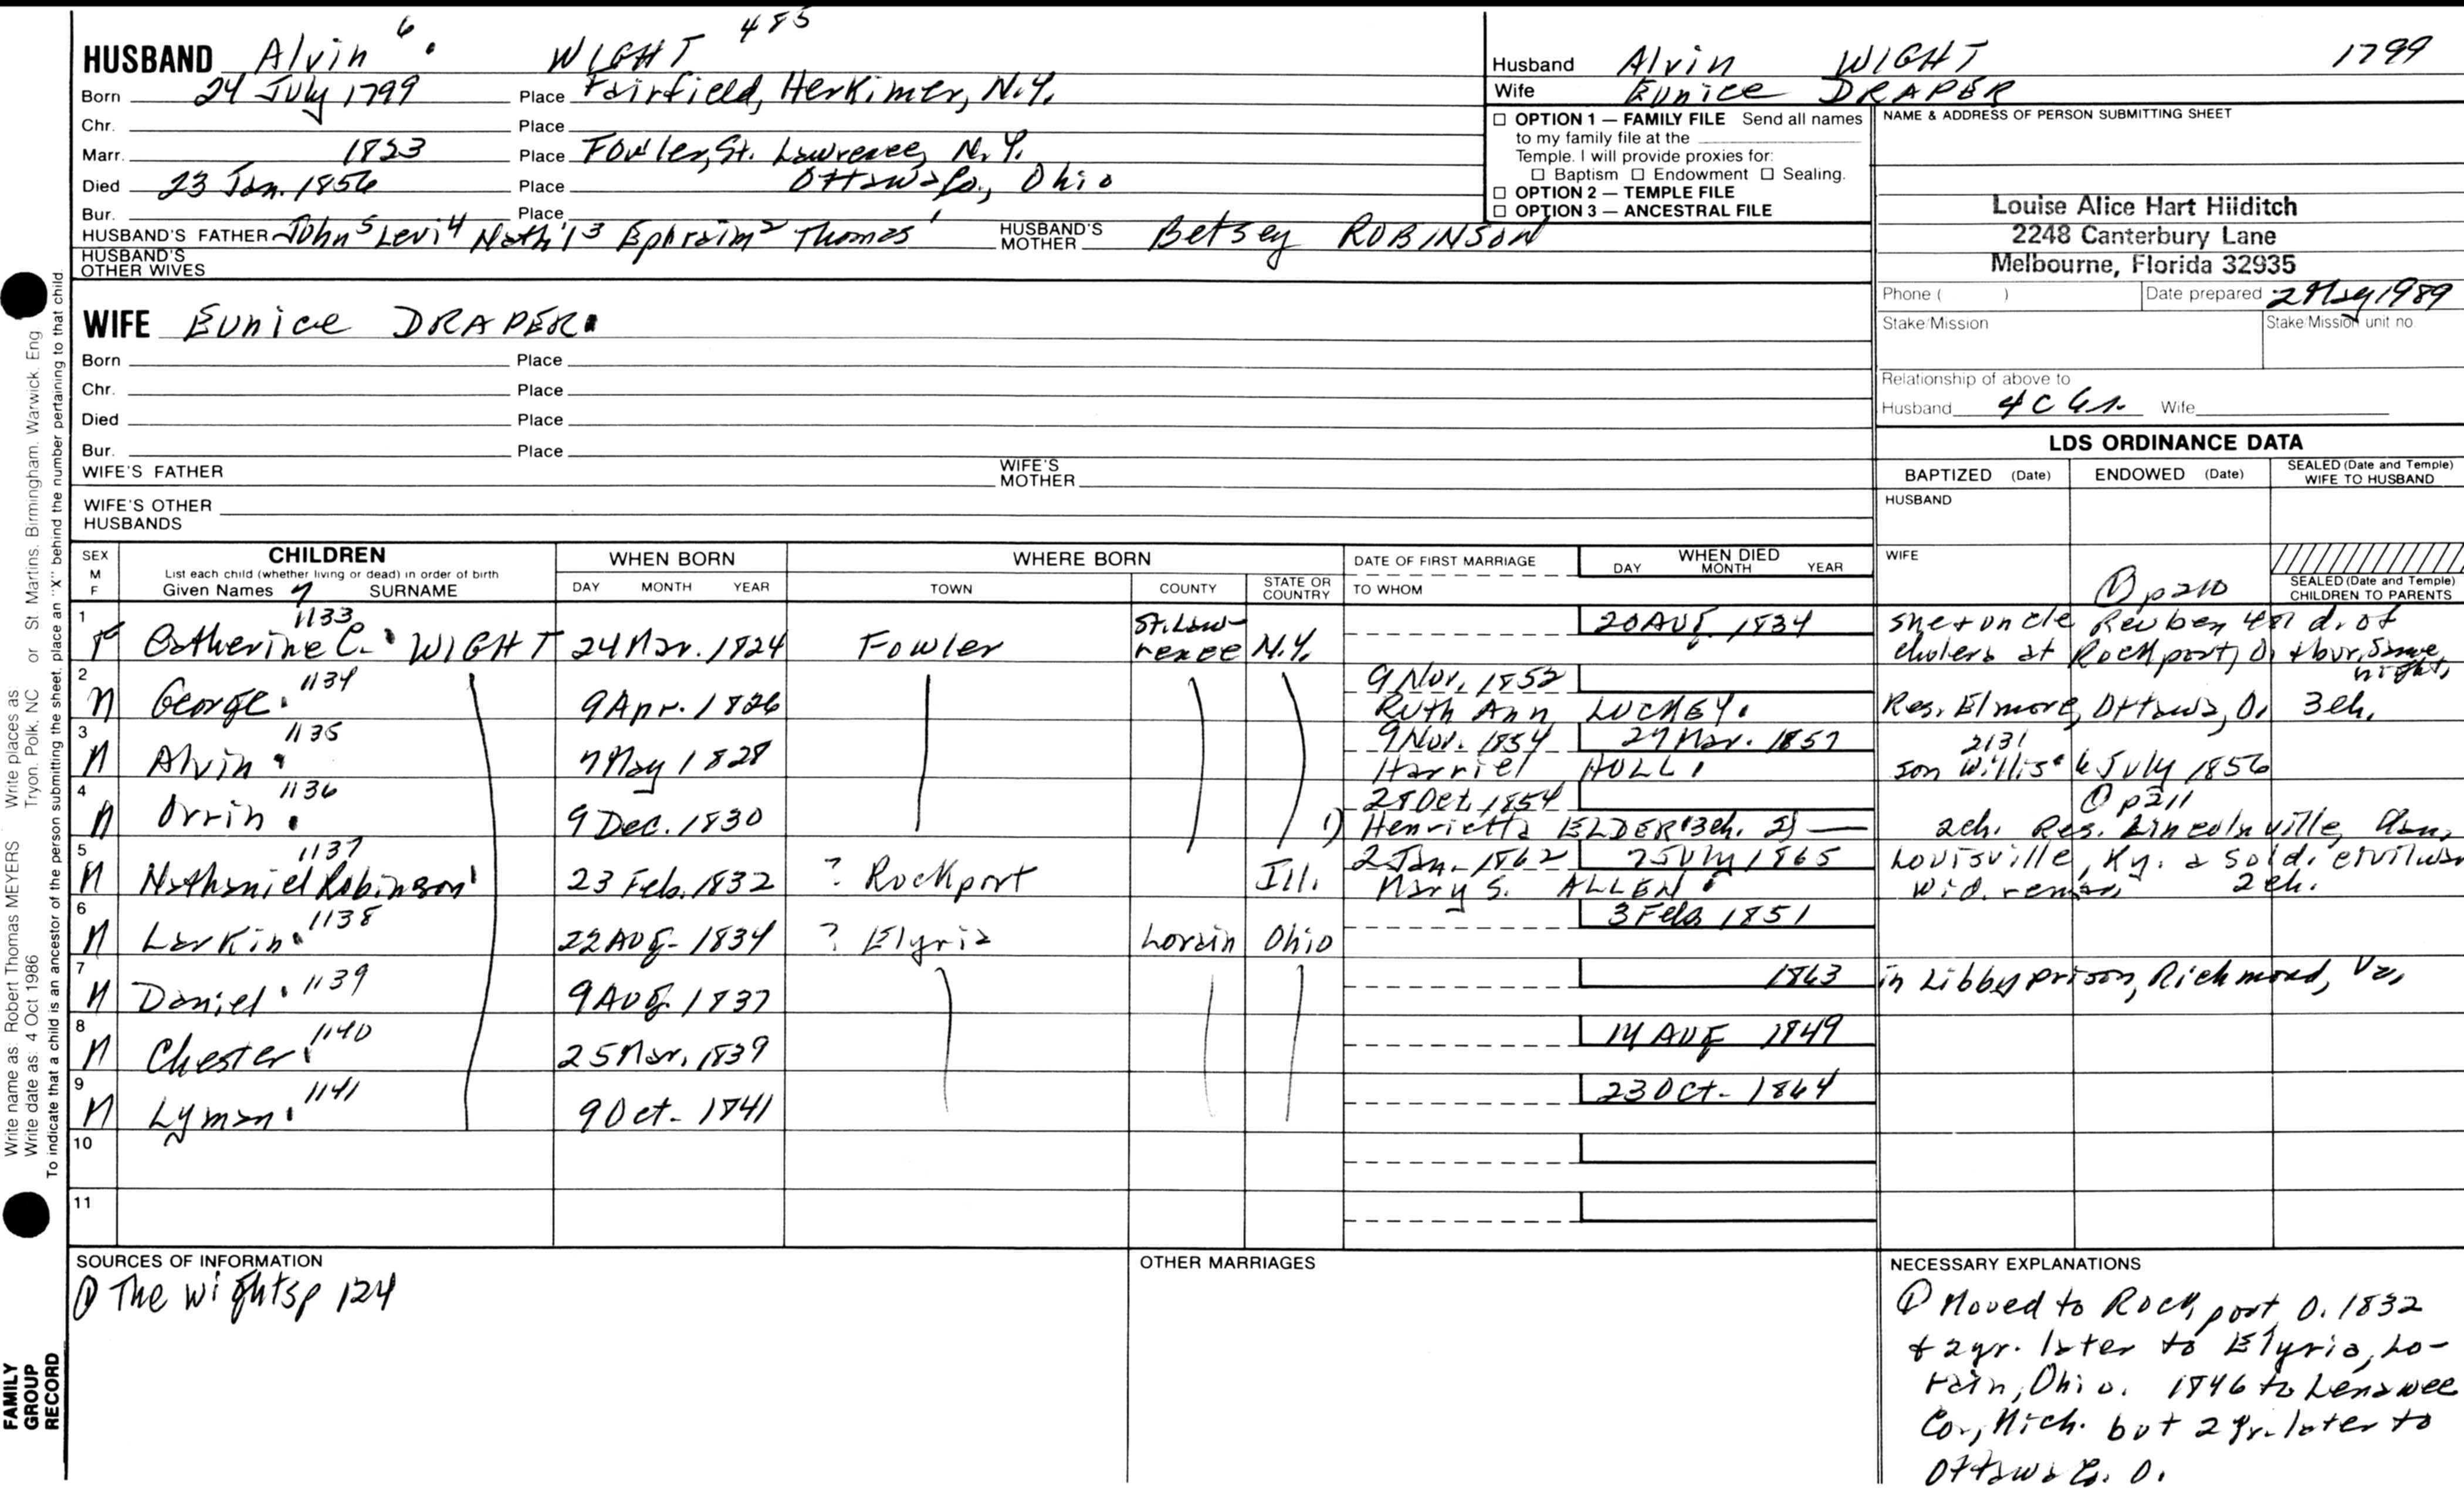 HUSBAND Alvin 6. WIGHT 485
Born 24 July 1799 Place Fairfield, Herkimer, N.Y.
Chr. Place
Marr. 1823 Place Fowler, St. Lawrence, N.Y.
Died 23 Jan. 1856 Place Ottawa Co., Ohio
Bur. Place
HUSBAND'S FATHER John5 Levi4 Nath'l3 Ephraim2 Thomas1 HUSBAND'S MOTHER Betsey ROBINSON
HUSBAND'S OTHER WIVES
Husband Alvin WIGHT 1799
Wife Eunice DRAPER
☐ OPTION 1 — FAMILY FILE Send all names
to my family file at the
Temple. I will provide proxies for:
☐ Baptism ☐ Endowment ☐ Sealing.
☐ OPTION 2 — TEMPLE FILE
☐ OPTION 3 — ANCESTRAL FILE
NAME & ADDRESS OF PERSON SUBMITTING SHEET
Louise Alice Hart Hilditch
2248 Canterbury Lane
Melbourne, Florida 32935
Phone ( ) Date prepared 1989
Stake/Mission Stake/Mission unit no
Relationship of above to
Husband 4C Wife
WIFE Eunice DRAPER.
Born Place
Chr. Place
Died Place
Bur. Place
WIFE'S FATHER WIFE'S MOTHER
WIFE'S OTHER HUSBANDS
LDS ORDINANCE DATA
BAPTIZED (Date) ENDOWED (Date) SEALED (Date and Temple) WIFE TO HUSBAND
HUSBAND
WIFE
① p210
SEALED (Date and Temple) CHILDREN TO PARENTS
SEX M F
CHILDREN
List each child (whether living or dead) in order of birth
Given Names 7 SURNAME
WHEN BORN
DAY MONTH YEAR
WHERE BORN
TOWN COUNTY STATE OR COUNTRY
DATE OF FIRST MARRIAGE
TO WHOM
WHEN DIED
DAY MONTH YEAR
1 F Catherine C. 1133 WIGHT 24 Mar. 1824 Fowler St. Law-rence N.Y. 20 Aug. 1834
she & uncle Reuben d. of
cholera at Rockport, O. & bur. same night,
2 M George. 1134 9 Apr. 1826 9 Nov. 1852
Ruth Ann LUCKEY. Res. Elmore, Ottawa, O. 3ch.
3 M Alvin. 1135 7 May 1828 9 Nov. 1854 Mar. 1857
Harriet HULL. 2131 son Willis. 6 July 1856
4 M Orrin. 1136 9 Dec. 1830 28 Oct. 1854
1) Henrietta ELDER 3ch. 2) —
① p211
2ch. Res. Lincolnville,
5 M Nathaniel Robinson 1137 23 Feb. 1832 ? Rockport Ill. 2 Jan. 1862 7 July 1865
Mary S. ALLEN. Louisville, Ky. a sold. civil war
wid. remar, 2ch.
6 M Larkin. 1138 22 Aug. 1834 ? Elyria Lorain Ohio 3 Feb 1851
7 M Daniel. 1139 9 Aug. 1837 1863 in Libby prison, Richmond, Va,
8 M Chester. 1140 25 Mar. 1839 14 Aug 1849
9 M Lyman. 1141 9 Oct. 1841 23 Oct. 1864
10
11
SOURCES OF INFORMATION
① The Wights p 124
OTHER MARRIAGES
NECESSARY EXPLANATIONS
① Moved to Rockport, O. 1832
& 2 yr. later to Elyria, Lo-
rain, Ohio. 1846 to Lenawee
Co., Mich. but 2 yr. later to
Ottawa Co. O.
Write name as: Robert Thomas MEYERS Write places as Tryon, Polk, NC or St. Martins, Birmingham, Warwick, Eng
Write date as: 4 Oct 1986
To indicate that a child is an ancestor of the person submitting the sheet, place an "X" behind the number pertaining to that child.
FAMILY
GROUP
RECORD